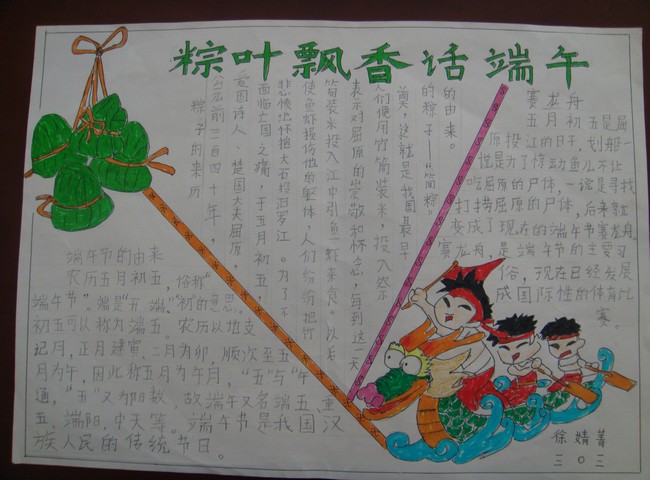 粽叶飘香话端午
端午节的由来
农历五月初五，俗称"
端午节"。端是"开端""初"的意思。
初五可以称为端五。农历以地支
记月，正月建寅，二月为卯，顺次至五
月为午，因此称五月为午月，"五"与"午"
通，"五"又为阳数，故端午又名端五、重
五、端阳、中天等。端午节是我国汉
族人民的传统节日。
粽子的来历
公元前三四〇年，
爱国诗人、楚国大夫屈原，
面临亡国之痛，于五月初五，
悲愤地怀抱大石投汨罗江。为了不
使鱼虾损伤他的躯体，人们纷纷把竹
筒装米投入江中引鱼虾来食。以后
表示对屈原的崇敬和怀念，每到这一天
人们便用竹筒装米，投入祭
奠，这就是我国最早
的粽子——"筒粽"
的由来。
赛龙舟
五月初五是屈
原投江的日子，划船一
说是为了惊动鱼儿不让
吃屈原的尸体，一说是寻找
打捞屈原的尸体，后来就
变成了现在的端午节赛龙舟。
赛龙舟，是端午节的主要习
俗，现在已经发展
成国际性的体育比
赛。
徐婧菁
三〇三